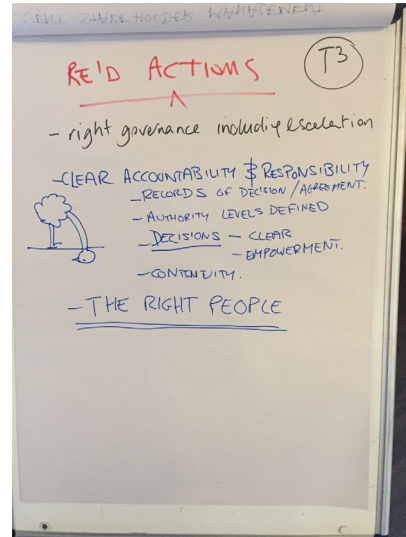 CLIENT STAKEHOLDER MANAGEMENT
T3
RE'D ACTIONS
- right governance including escalation
- CLEAR ACCOUNTABILITY & RESPONSIBILITY
- RECORDS OF DECISION / AGREEMENT.
- AUTHORITY LEVELS DEFINED
- DECISIONS - CLEAR
- EMPOWERMENT.
- CONTINUITY.
- THE RIGHT PEOPLE